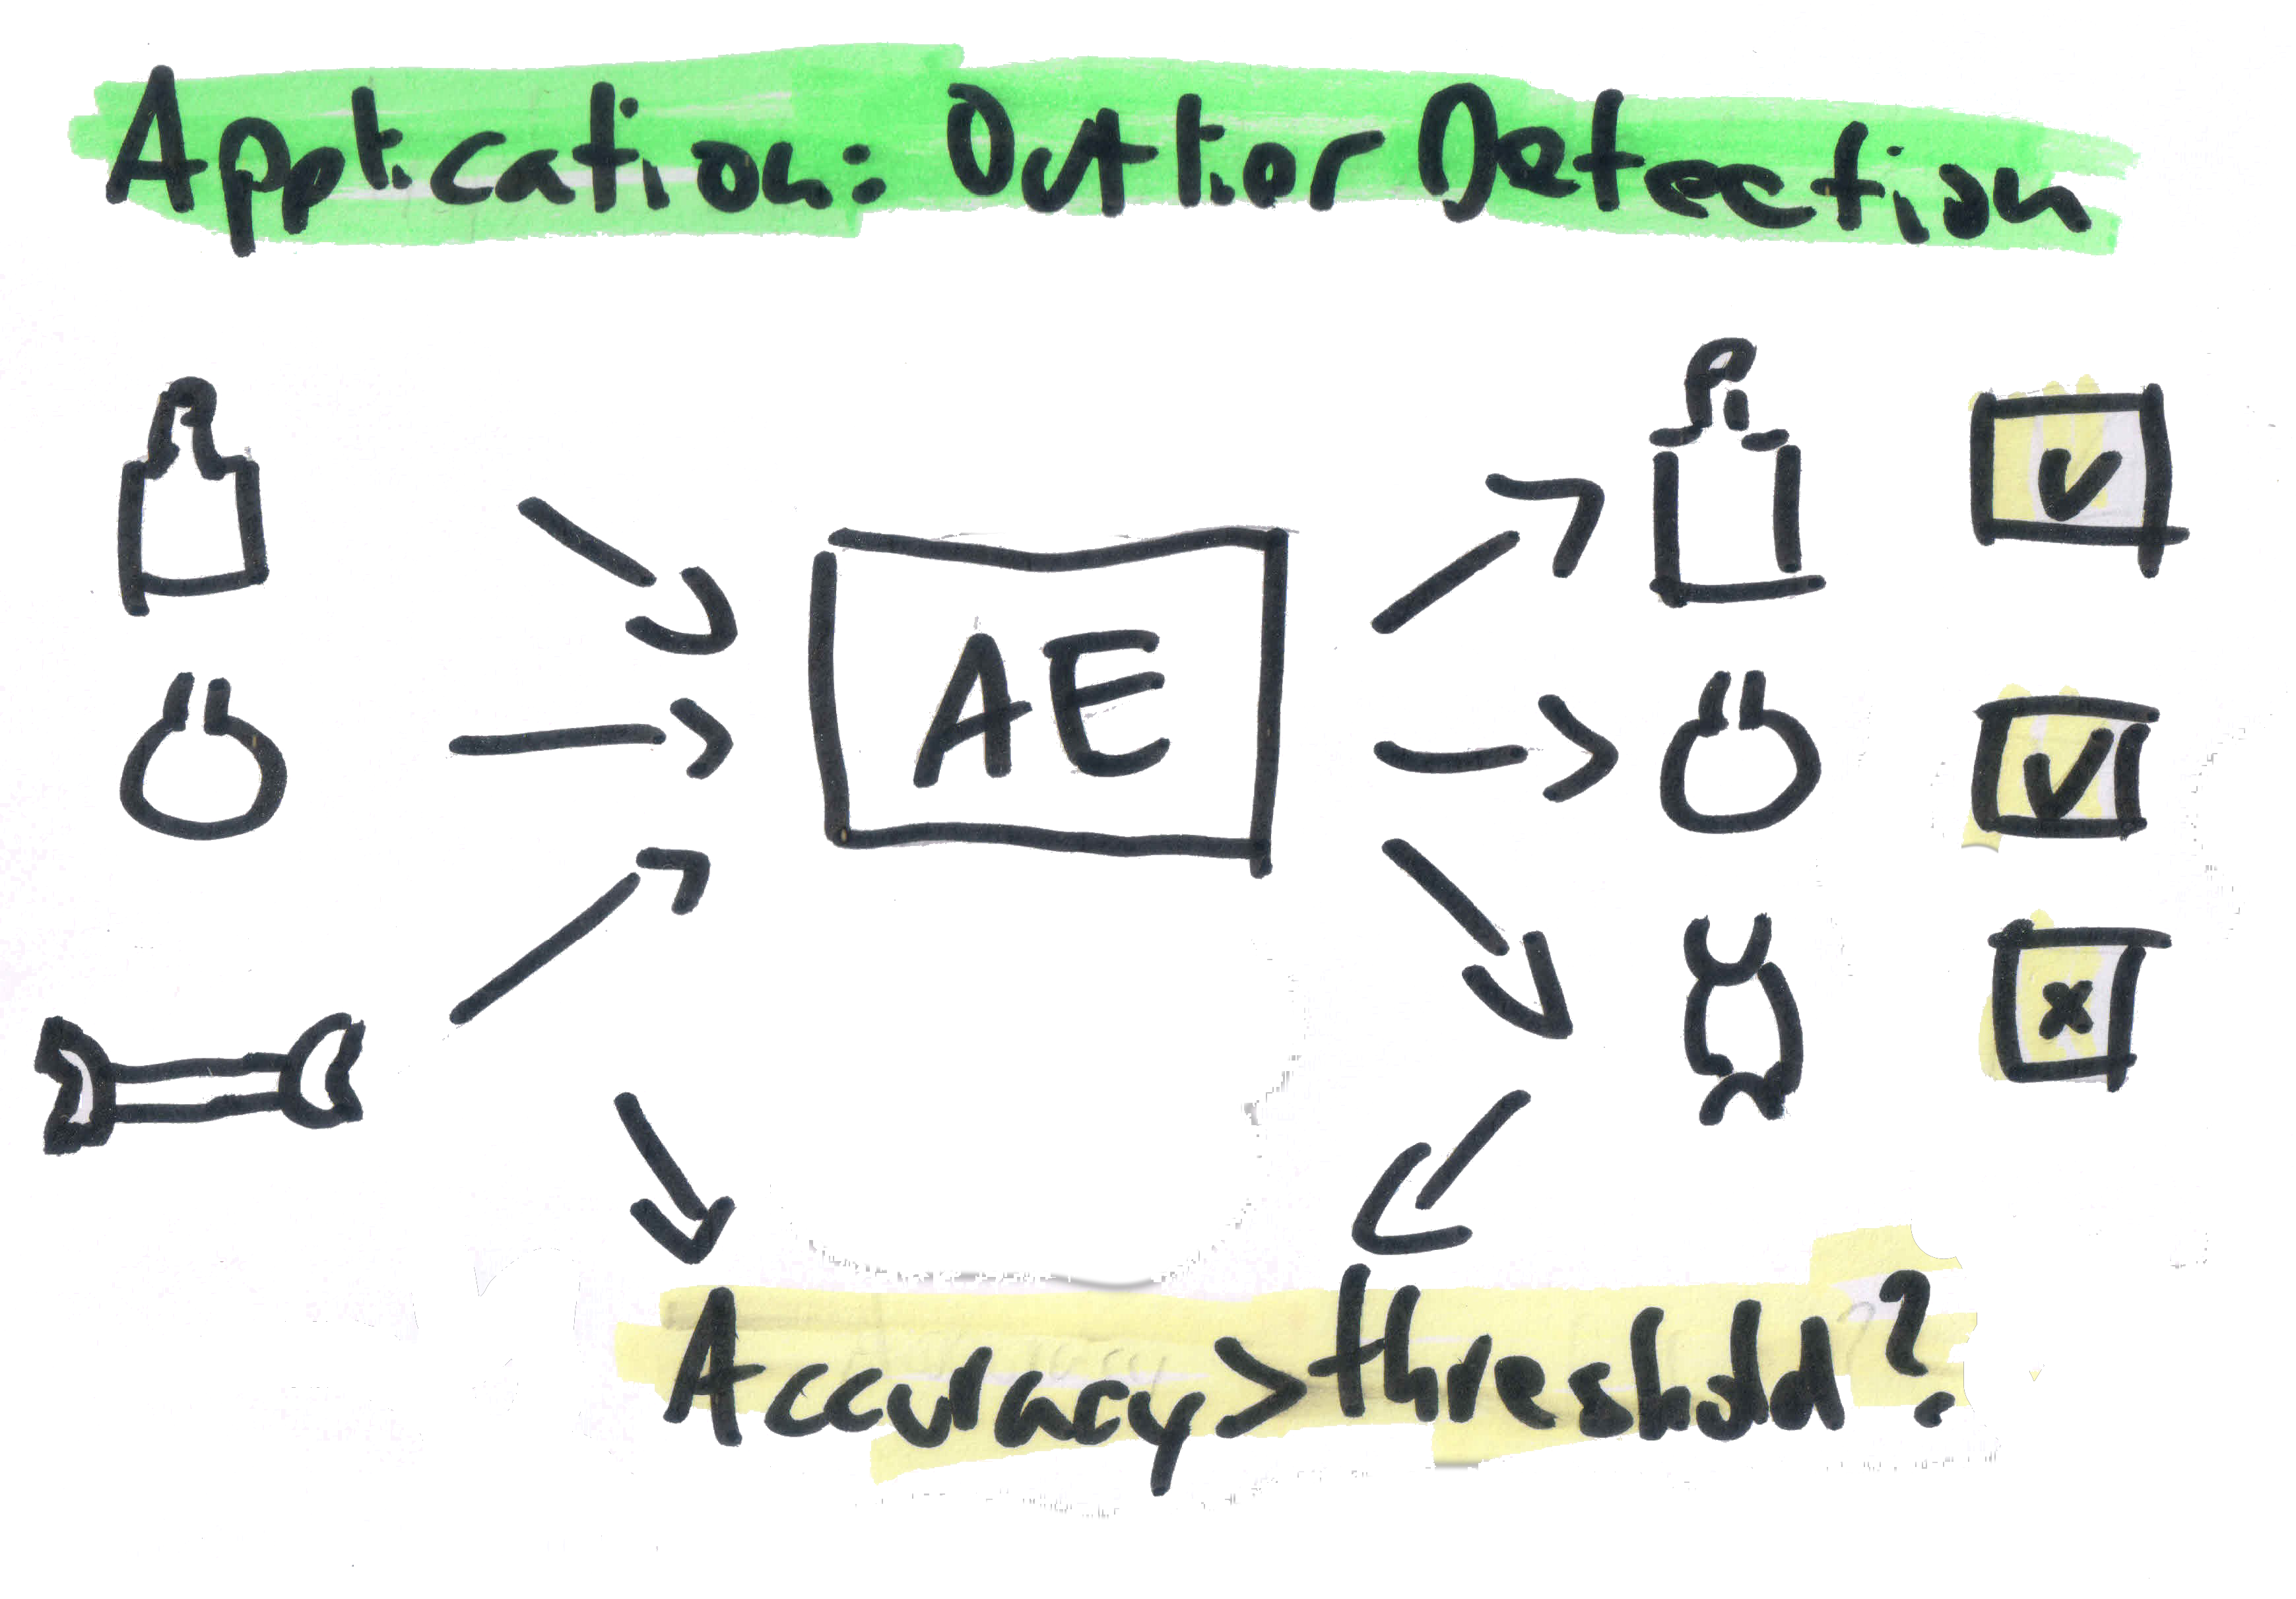 Application: Outlier Detection
AE
Accuracy > threshold?